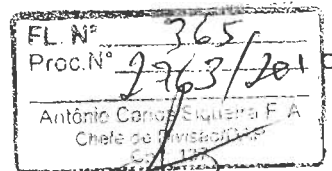 FL. Nº 365
Proc. Nº 2763/201
Antônio Carlos Siqueira F. A
Chefe de Divisão/DAP